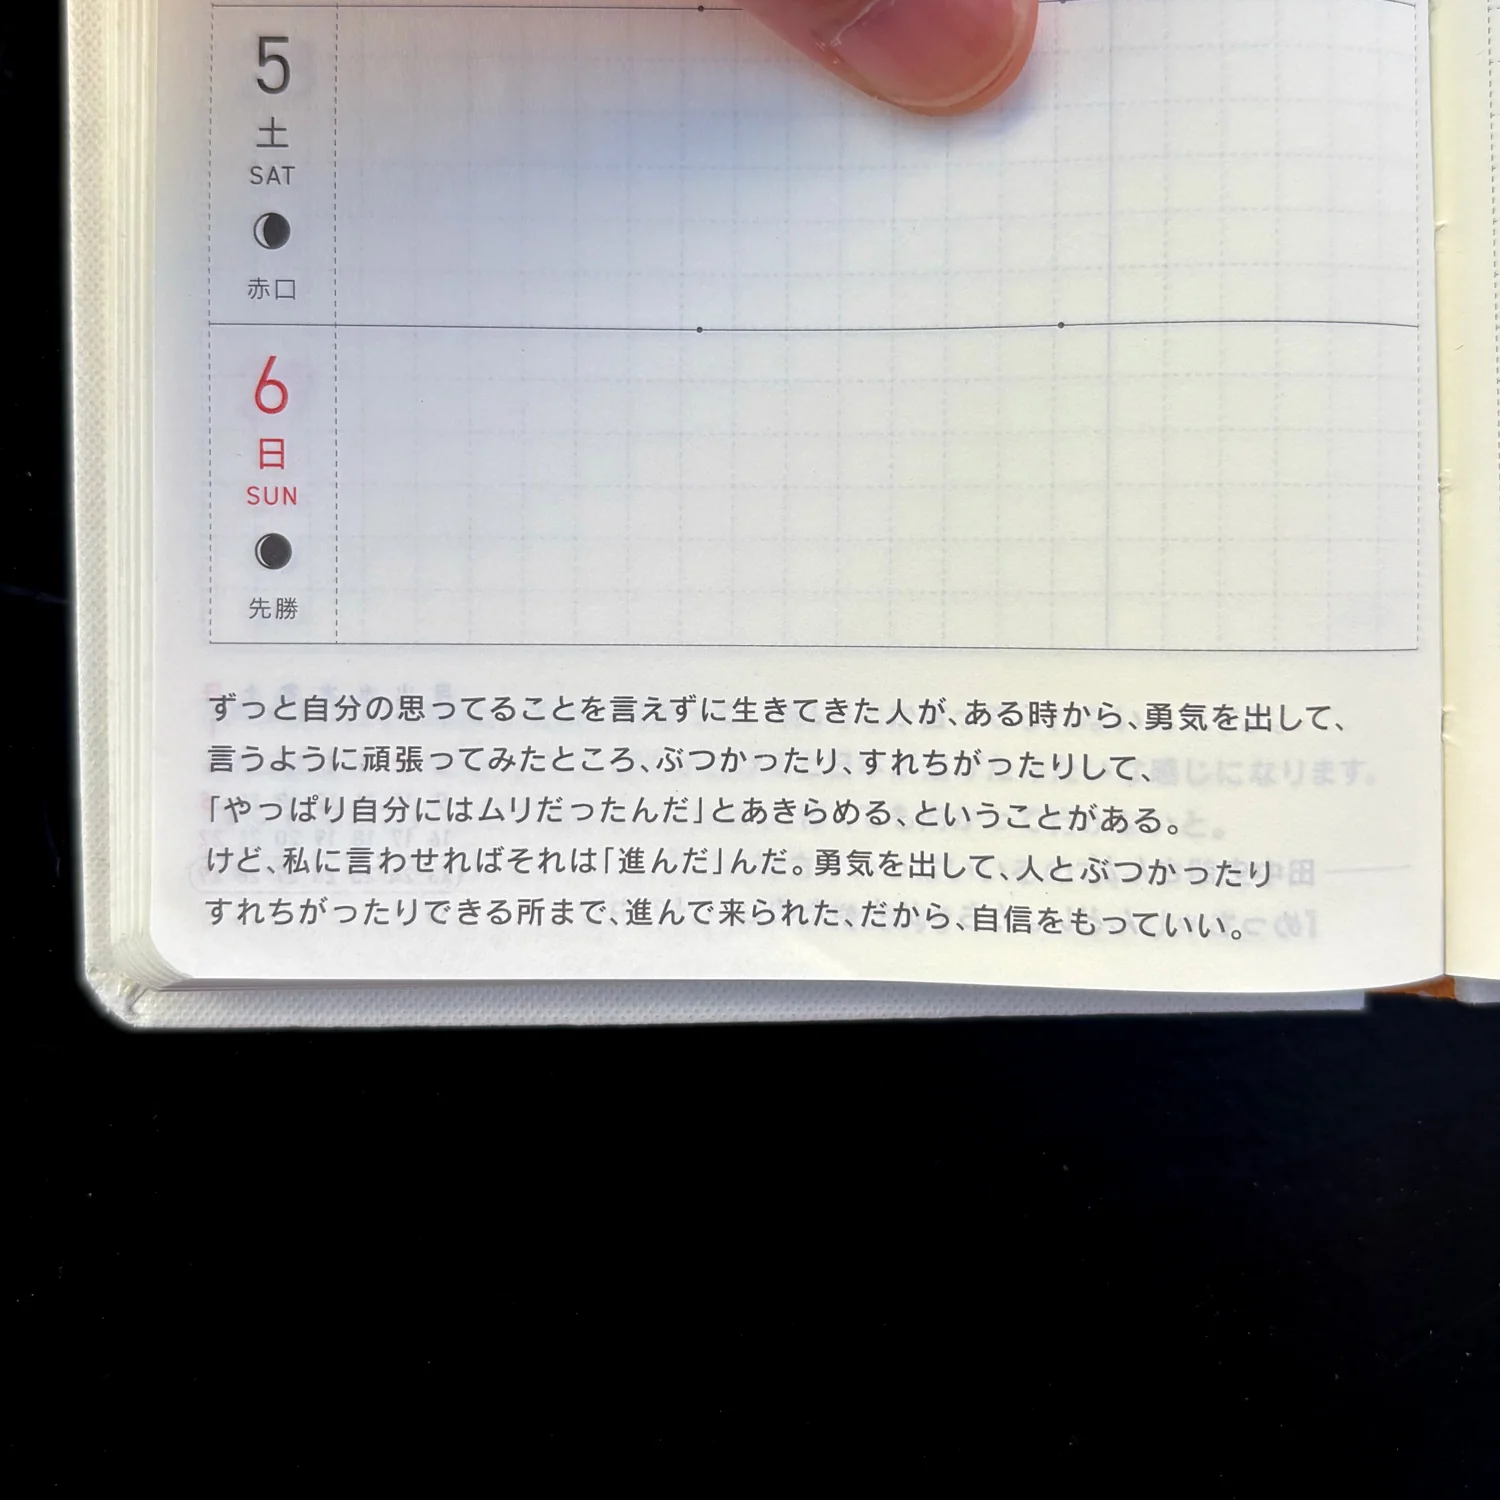 5
土
SAT
赤口
6
日
SUN
先勝
ずっと自分の思ってることを言えずに生きてきた人が、ある時から、勇気を出して、
言うように頑張ってみたところ、ぶつかったり、すれちがったりして、
「やっぱり自分にはムリだったんだ」とあきらめる、ということがある。
けど、私に言わせればそれは「進んだ」んだ。勇気を出して、人とぶつかったり
すれちがったりできる所まで、進んで来られた、だから、自信をもっていい。